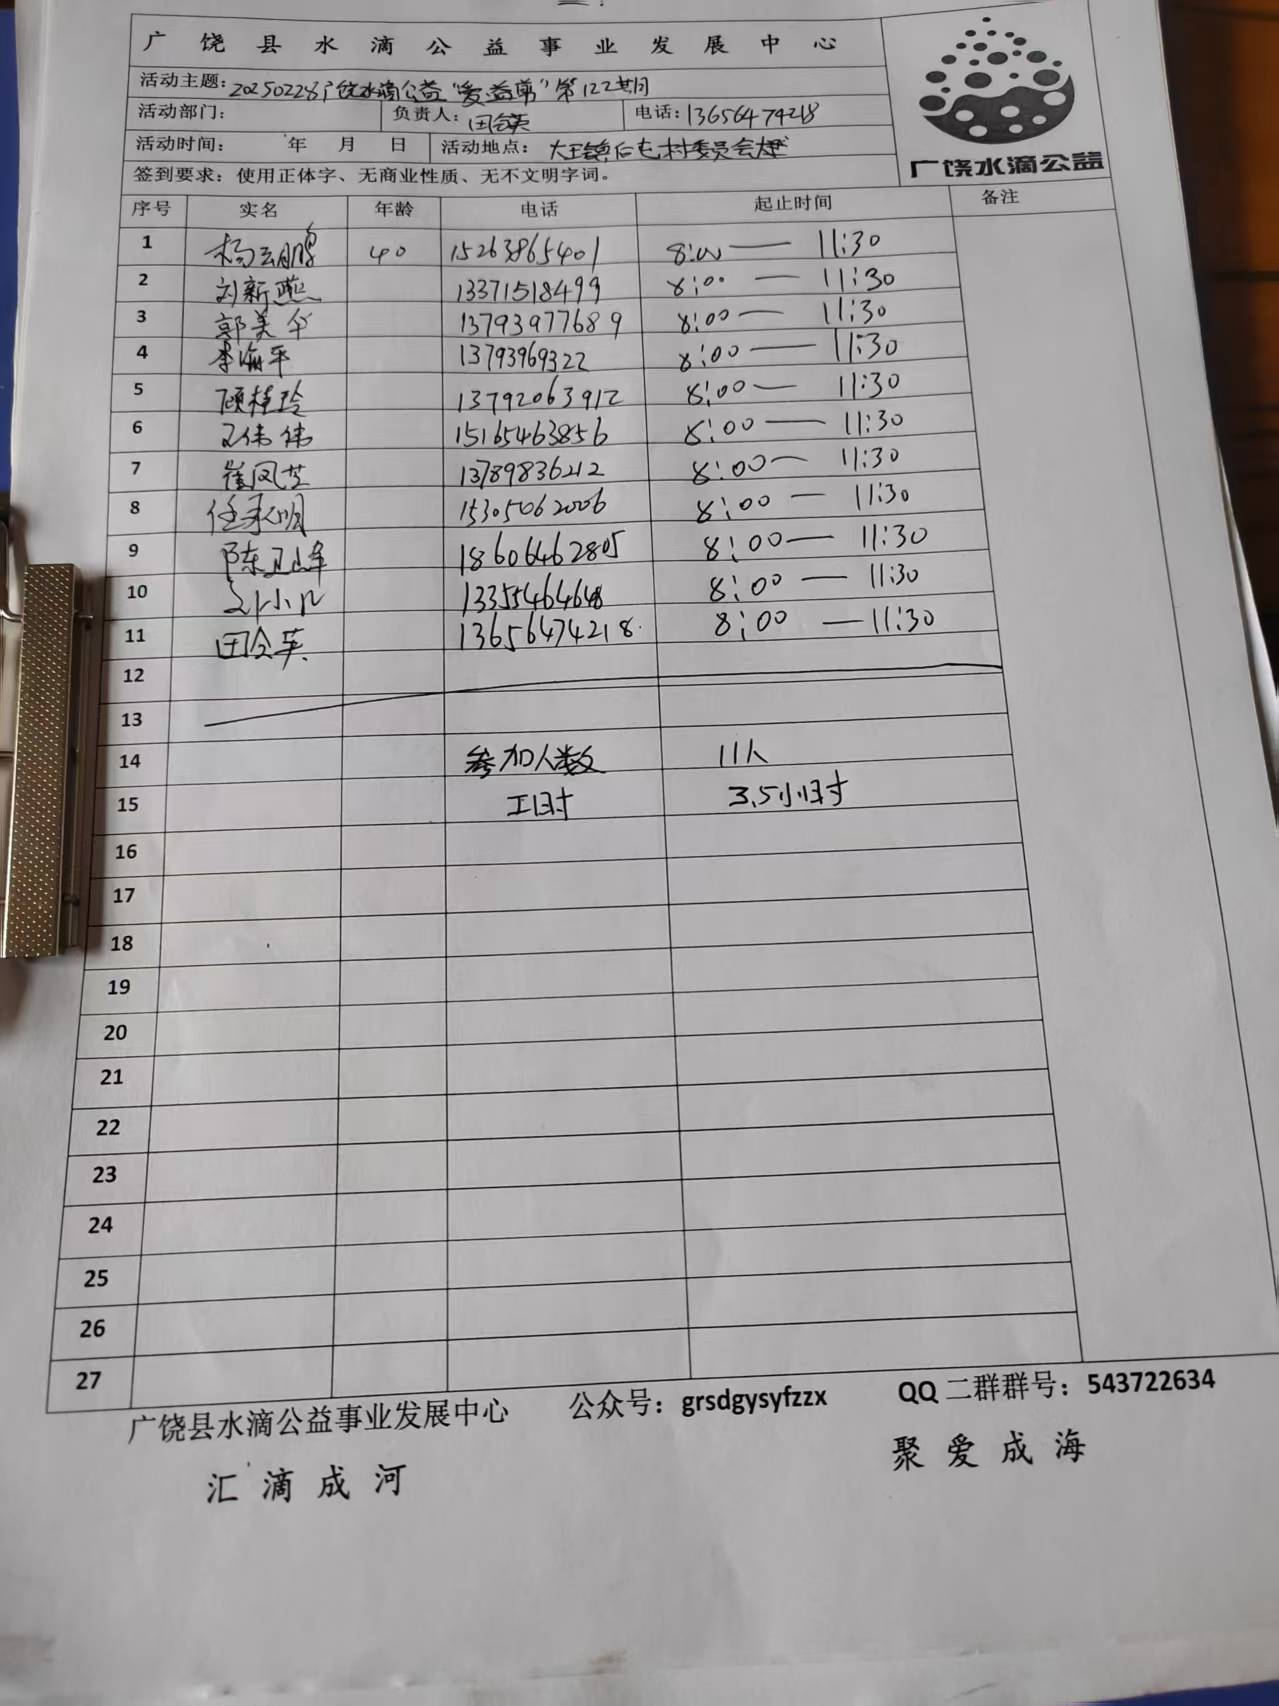 广饶县水滴公益事业发展中心
活动主题：20250228广饶水滴公益“爱益剪”第122期
活动部门： 负责人：田会英 电话：13656474218
活动时间： 年 月 日 活动地点：大王镇后屯村委员会大
签到要求：使用正体字、无商业性质、无不文明字词。
广饶水滴公益
序号 实名 年龄 电话 起止时间 备注
1 杨云鹏 40 15263865401 8:00 — 11:30
2 刘新燕 13371518499 8:00 — 11:30
3 郭美华 13793977689 8:00 — 11:30
4 李海平 13793969322 8:00 — 11:30
5 顾桂玲 13792063912 8:00 — 11:30
6 王伟伟 15165463856 8:00 — 11:30
7 崔凤芝 13789836212 8:00 — 11:30
8 任永明 15305062006 8:00 — 11:30
9 陈卫峰 18606462805 8:00 — 11:30
10 刘小儿 13355464648 8:00 — 11:30
11 田会英 13656474218 8:00 — 11:30
12
13
14 参加人数 11人
15 工时 3.5小时
16
17
18
19
20
21
22
23
24
25
26
27
广饶县水滴公益事业发展中心 公众号：grsdgysyfzzx QQ二群群号：543722634
汇滴成河 聚爱成海